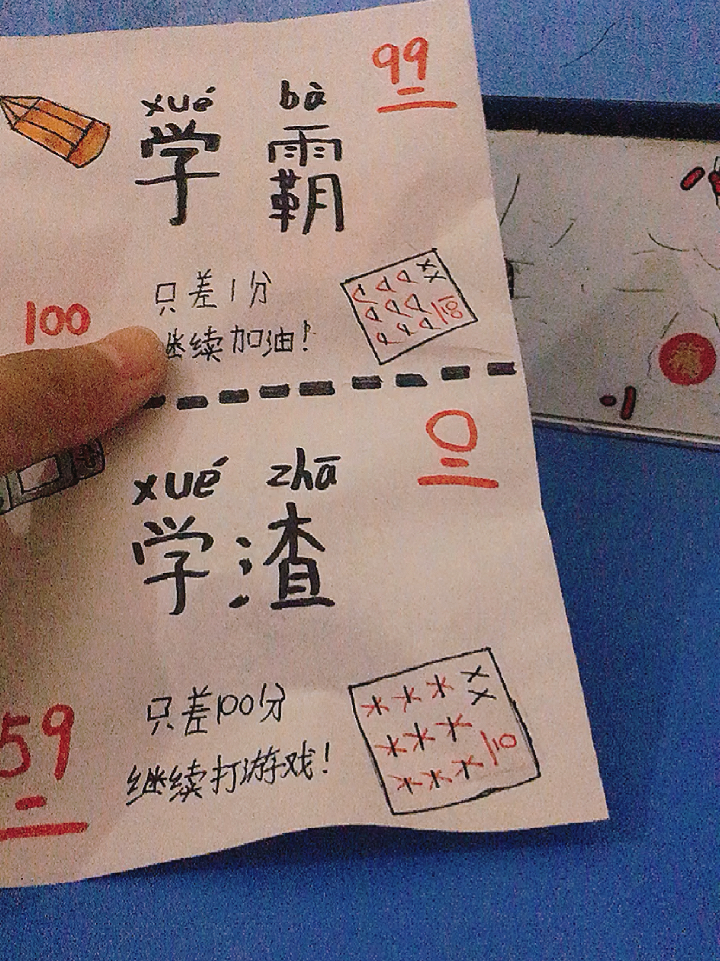 99
xué bà
学霸
100
只差1分
继续加油!
XX
100
0
xué zhā
学渣
59
只差100分
继续打游戏!
XX
10
福